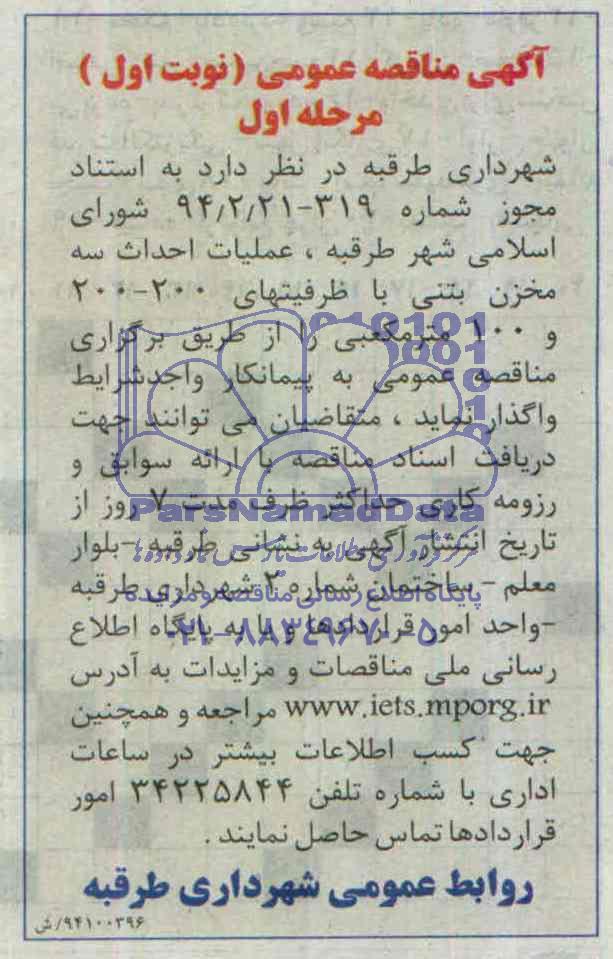 آگهی مناقصه عمومی (نوبت اول)
مرحله اول
شهرداری طرقبه در نظر دارد به استناد
مجوز شماره ۳۱۹-۹۴/۲/۲۱ شورای
اسلامی شهر طرقبه ، عملیات احداث سه
مخزن بتنی با ظرفیتهای ۲۰۰-۲۰۰
و ۱۰۰ مترمکعبی را از طریق برگزاری
مناقصه عمومی به پیمانکار واجدشرایط
واگذار نماید ، متقاضیان می توانند جهت
دریافت اسناد مناقصه با ارائه سوابق و
رزومه کاری حداکثر ظرف مدت ۷ روز از
ParsNamadData
تاریخ انتشار آگهی به نشانی طرقبه -بلوار
مرکز فرآوری اطلاعات پارس نماد داده ها
معلم - ساختمان شماره ۲ شهرداری طرقبه
پایگاه اطلاع رسانی مناقصه و مزایده
-واحد امور قراردادها و یا به پایگاه اطلاع
۰۲۱-۸۸۳۴۹۶۷۰-۵
رسانی ملی مناقصات و مزایدات به آدرس
www.iets.mporg.ir مراجعه و همچنین
جهت کسب اطلاعات بیشتر در ساعات
اداری با شماره تلفن ۳۴۲۲۵۸۴۴ امور
قراردادها تماس حاصل نمایند .
روابط عمومی شهرداری طرقبه
۹۴۱۰۰۳۹۶/ش